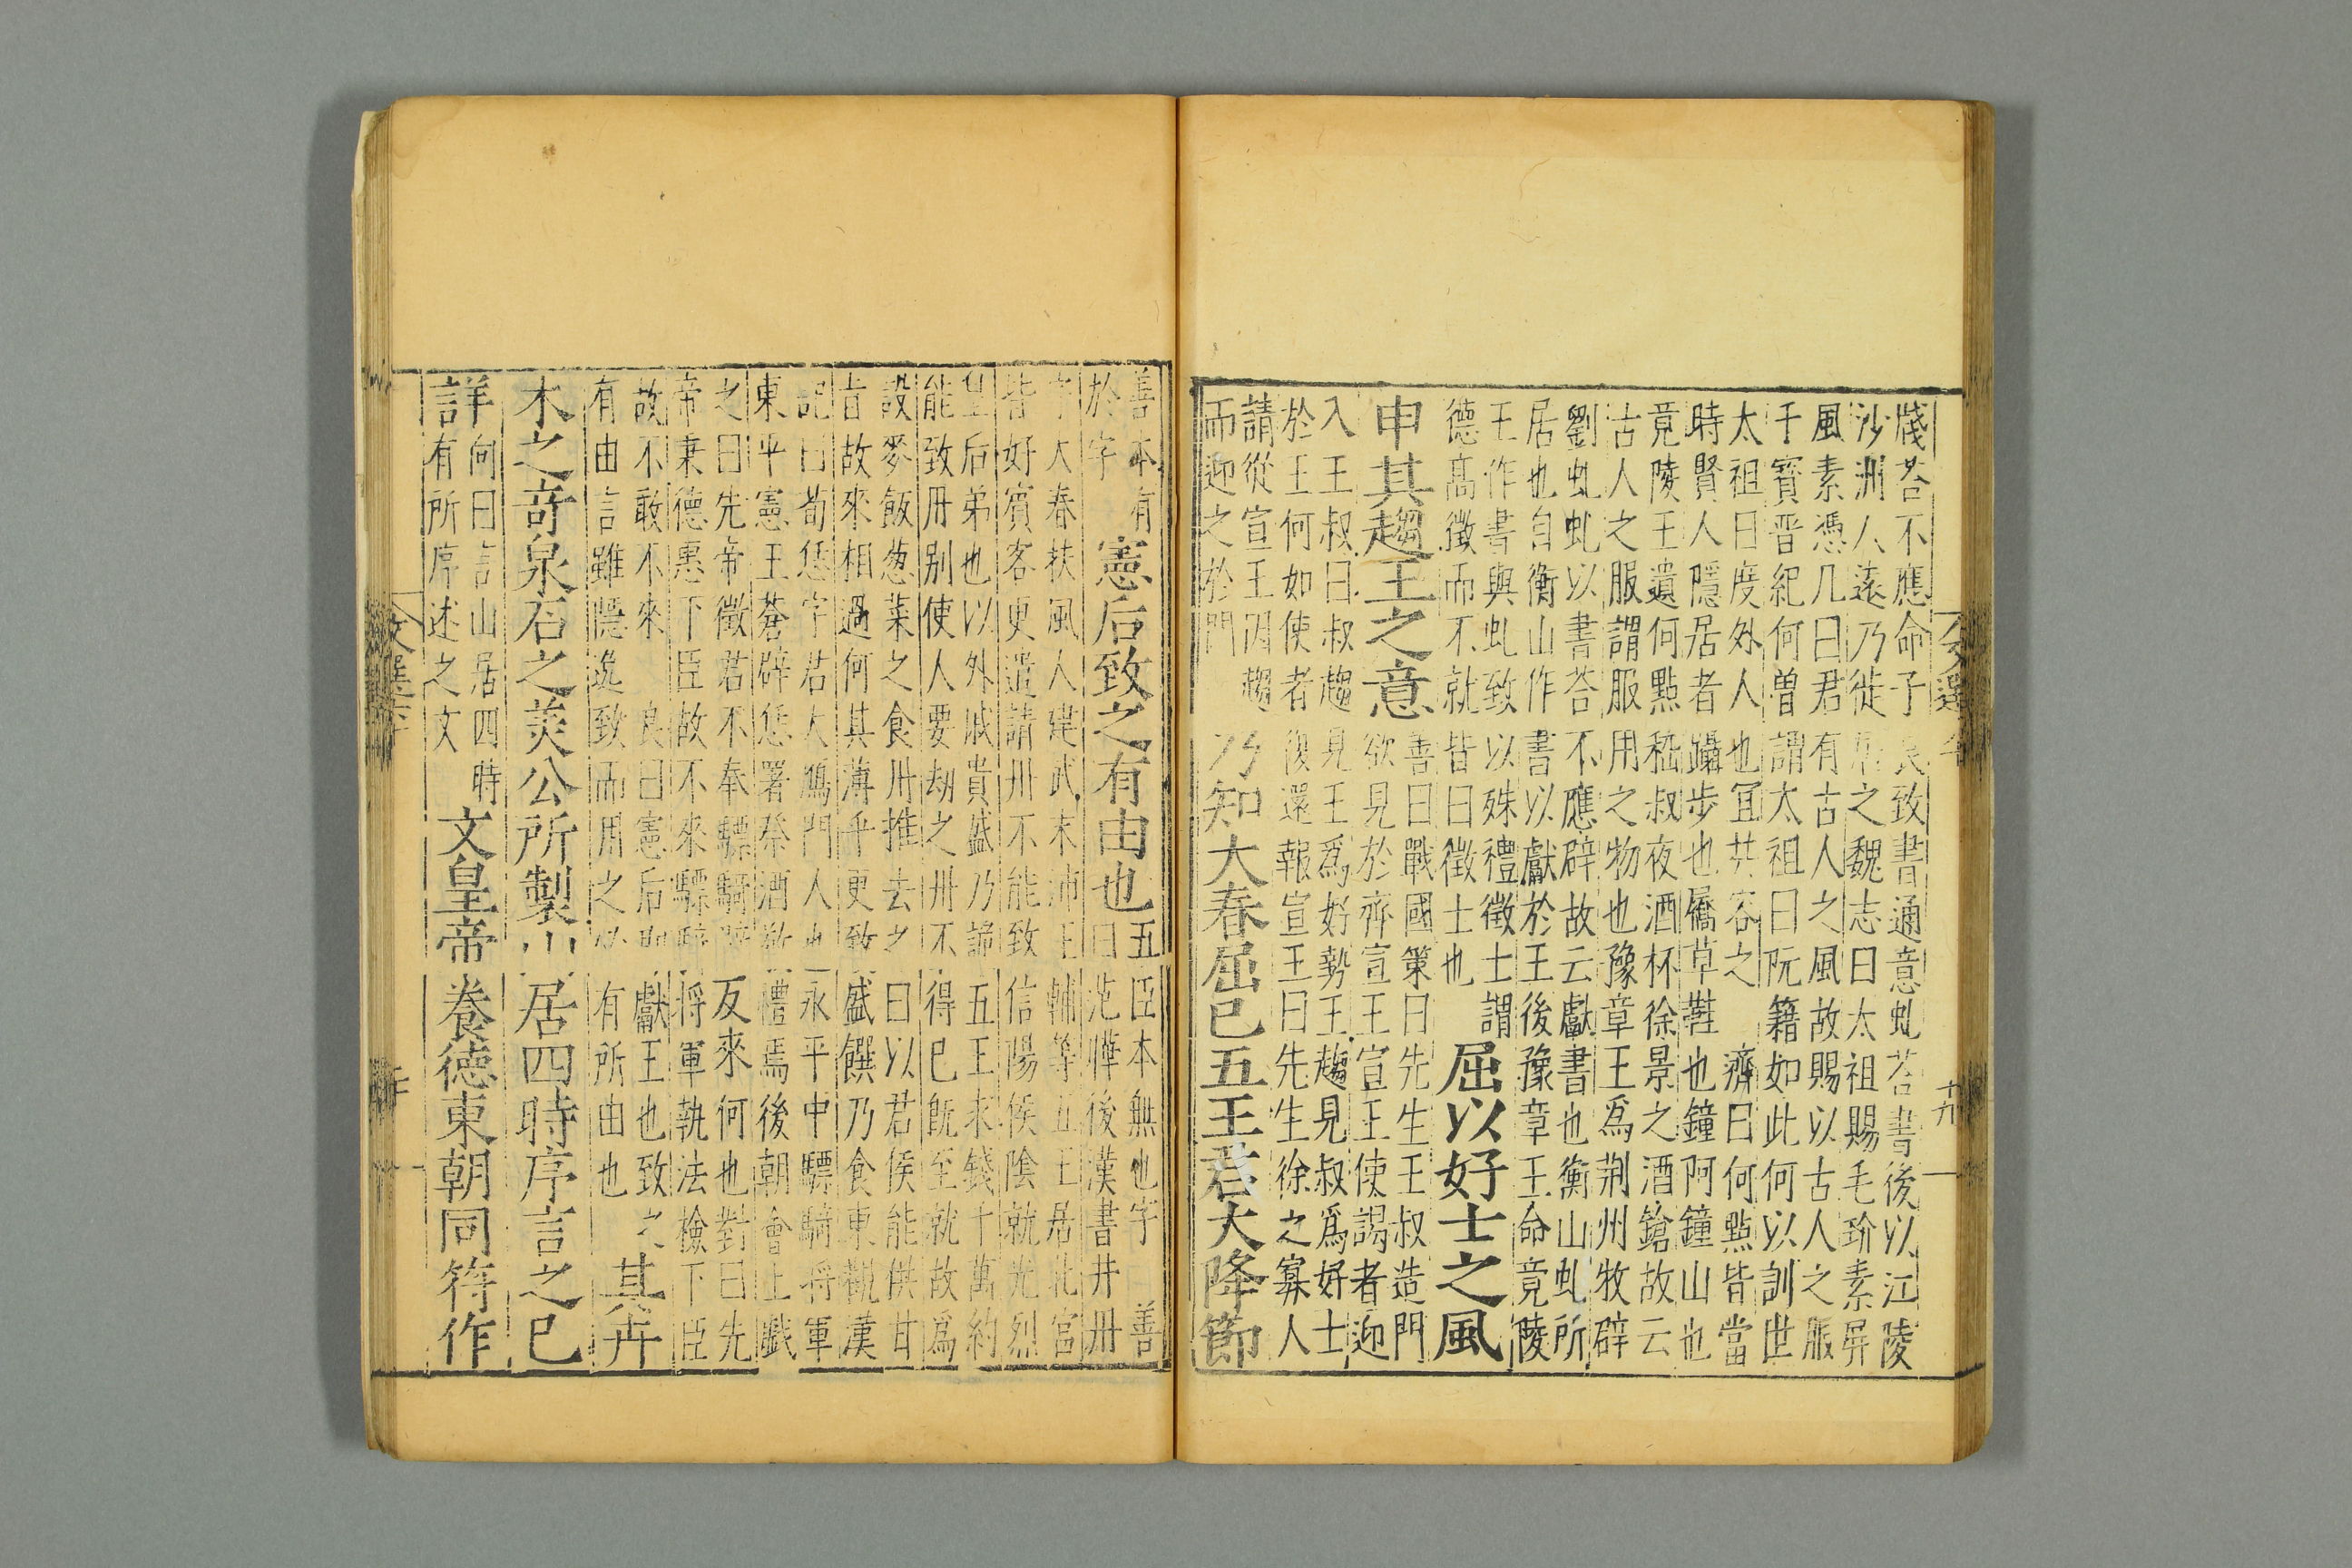 牋荅不應命子良致書通意虬荅書後以江陵
沙洲人遠乃徙居之魏志曰太祖賜毛玠素屏
風素憑几曰君有古人之風故賜以古人之服
于寳晋紀何曽謂太祖曰阮籍如此何以訓世
太祖曰度外人也冝共容之 濟曰何點皆當
時賢人隱居者躡步也屩草鞋也鐘阿鐘山也
竟陵王遺何點嵇叔夜酒杯徐景之酒鎗故云
古人之服謂服用之物也豫章王爲荆州牧辟
劉虬虬以書荅不應辟故云獻書也衡山虬所
居也自衡山作書以獻於王後豫章王命竟陵
王作書與虬致以殊禮徵士謂
德髙徵而不就皆曰徵士也
屈以好士之風
申其趨王之意
善曰戰國策曰先生王叔造門
欲見於齊宣王宣王使謁者迎
入王叔曰叔趨見王爲好勢王趨見叔爲好士
於王何如使者復還報宣王曰先生徐之寡人
請從宣王因趨
而迎之於門
乃知大春屈已五王君大降節
善本有
於字
憲后致之有由也
五臣本無也字 善
曰范曄後漢書井冊
字大春扶風人建武末沛王輔等五王居北宮
皆好賓客更遣請卅不能致信陽侯陰就光烈
皇后弟也以外戚貴盛乃詭五王求錢千萬約
能致冊别使人要劫之卅不得已旣至就故爲
設麥飯葱葉之食卅推去之曰以君侯能供甘
旨故來相過何其薄乎更致盛饌乃食東觀漢
記曰荀恁字君大鴈門人也永平中驃騎将軍
東平憲王蒼辟恁署祭酒敬禮焉後朝會上戱
之曰先帝徵君不奉驃騎辟反來何也對曰先
帝秉德惠下臣故不來驃騎将軍執法檢下臣
故不敢不來 良曰憲后即獻王也致之
有由言雖隱逸致而用之必有所由也
其卉
木之竒泉石之羙公所製山居四時序言之已
詳
向曰言山居四時
有所序述之文
文皇帝養德東朝同符作